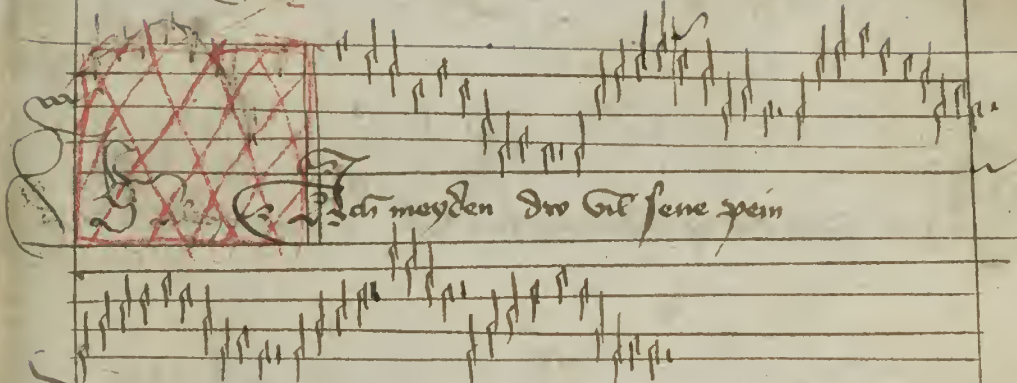 Ach meyden dw vil sene pein